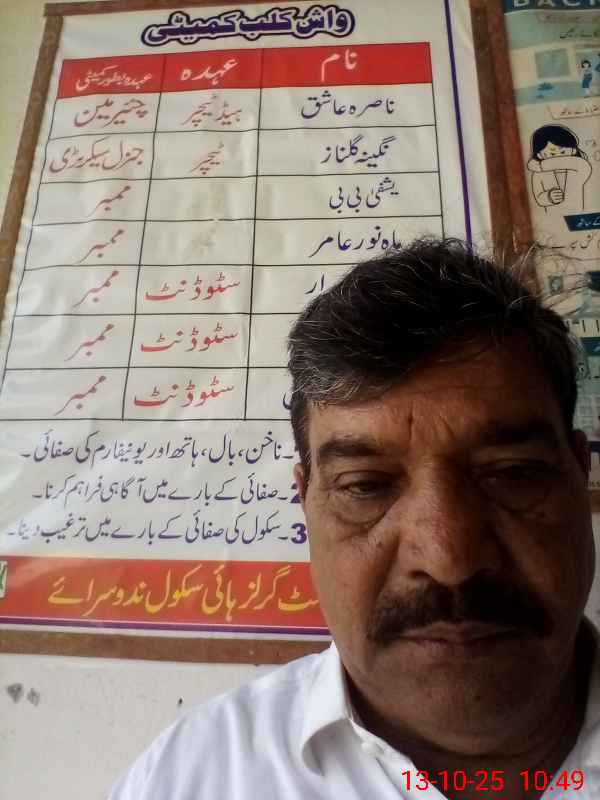 واش کلب کمیٹی
نام عہدہ عہدہ بطور کمیٹی
ناصرہ عاشق ہیڈ ٹیچر چیئرمین
نگینہ گلناز ٹیچر جنرل سیکرٹری
یشفیٰ بی بی ممبر
ماہ نور عامر ممبر
ار سٹوڈنٹ ممبر
سٹوڈنٹ ممبر
سٹوڈنٹ ممبر
۔ناخن، بال، ہاتھ اور یونیفارم کی صفائی۔
2۔صفائی کے بارے میں آگاہی فراہم کرنا۔
3۔سکول کی صفائی کے بارے میں ترغیب دینا۔
گرلز ہائی سکول ندوسرائے
BACK
13-10-25 10:49